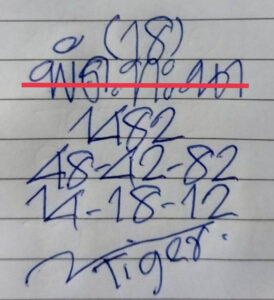 (18)
1482
48-42-82
14-18-12
Tiger.